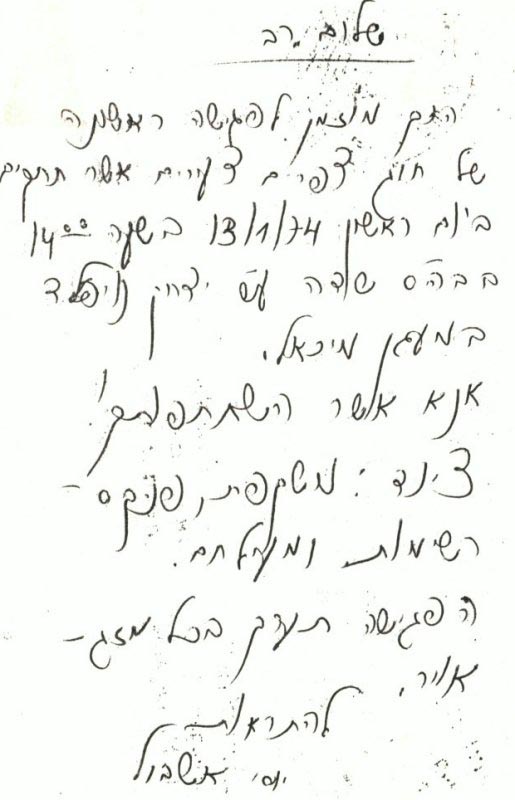 שלום רב
הנך מוזמן לפגישה ראשונה
של חוג צפרים צעירים אשר תתקיים
ביום ראשון 13/1/74 בשעה 14⁰⁰
בביה"ס שדה ע"ש יצחק
במעגן מיכאל.
אנא אשר השתתפותך!
ציוד: משקפת, פנקס-
רשימות ומעיל חם.
הפגישה תערך בכל מזג-
אויר.
להתראות
יוסי אשבול